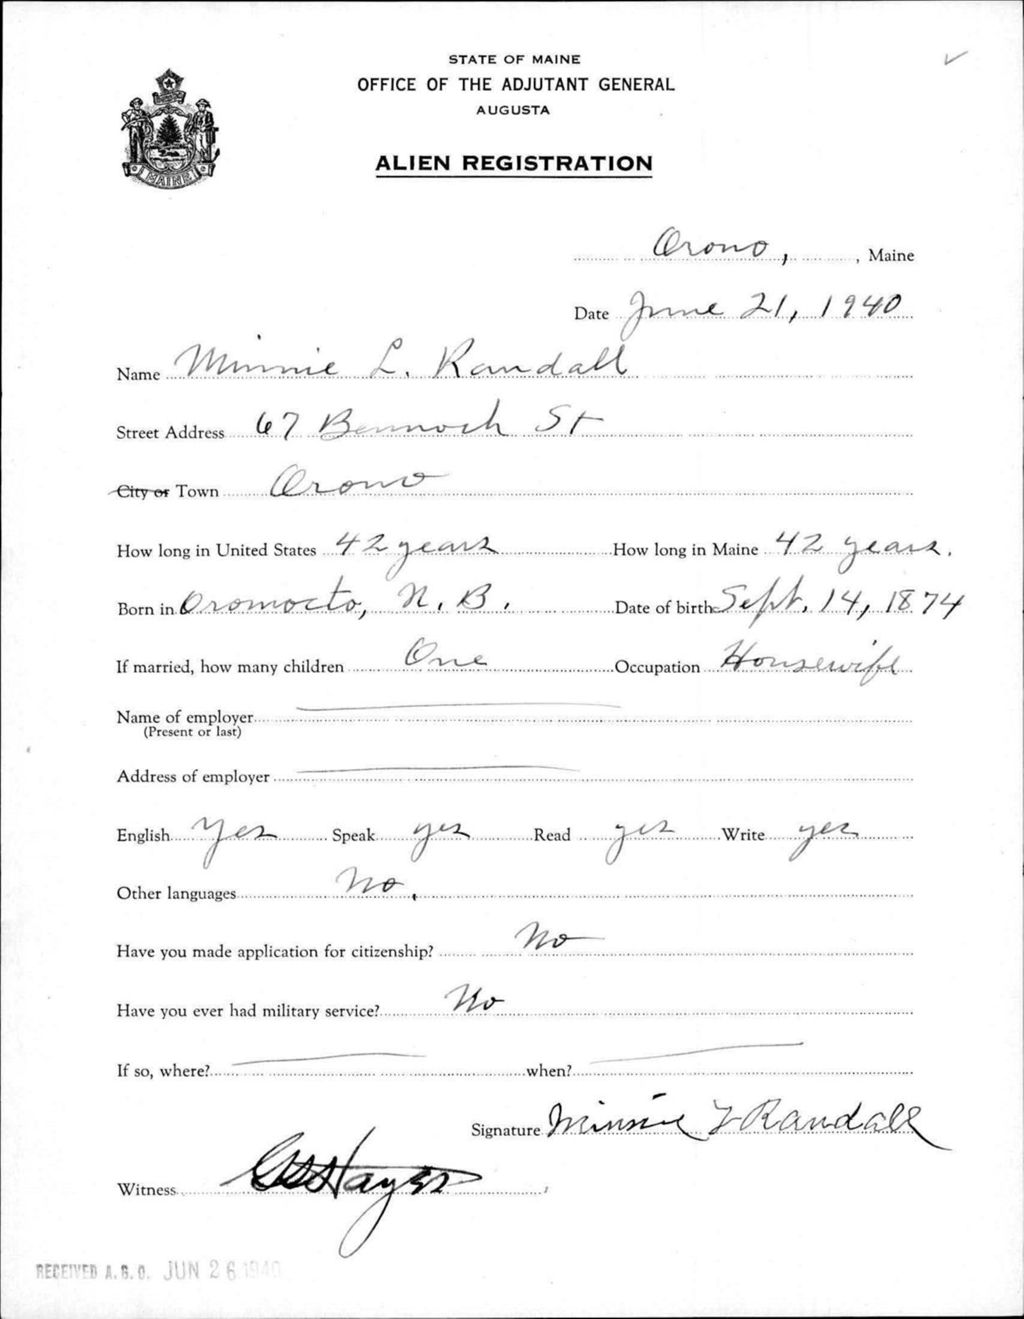 STATE OF MAINE
OFFICE OF THE ADJUTANT GENERAL
AUGUSTA
ALIEN REGISTRATION
MAINE
Orono, , Maine
Date June 21, 1940
Name Minnie L. Randall
Street Address 67 Bennoch St
City or Town Orono
How long in United States 42 years How long in Maine 42 years.
Born in Oromocto, N. B. Date of birth Sept. 14, 1874
If married, how many children One Occupation Housewife
Name of employer
(Present or last)
Address of employer
English Yes Speak yes Read yes Write yes
Other languages No.
Have you made application for citizenship? No
Have you ever had military service? No
If so, where? when?
Signature Minnie L Randall
Witness Hayes
RECEIVED A.G.O. JUN 26 1940